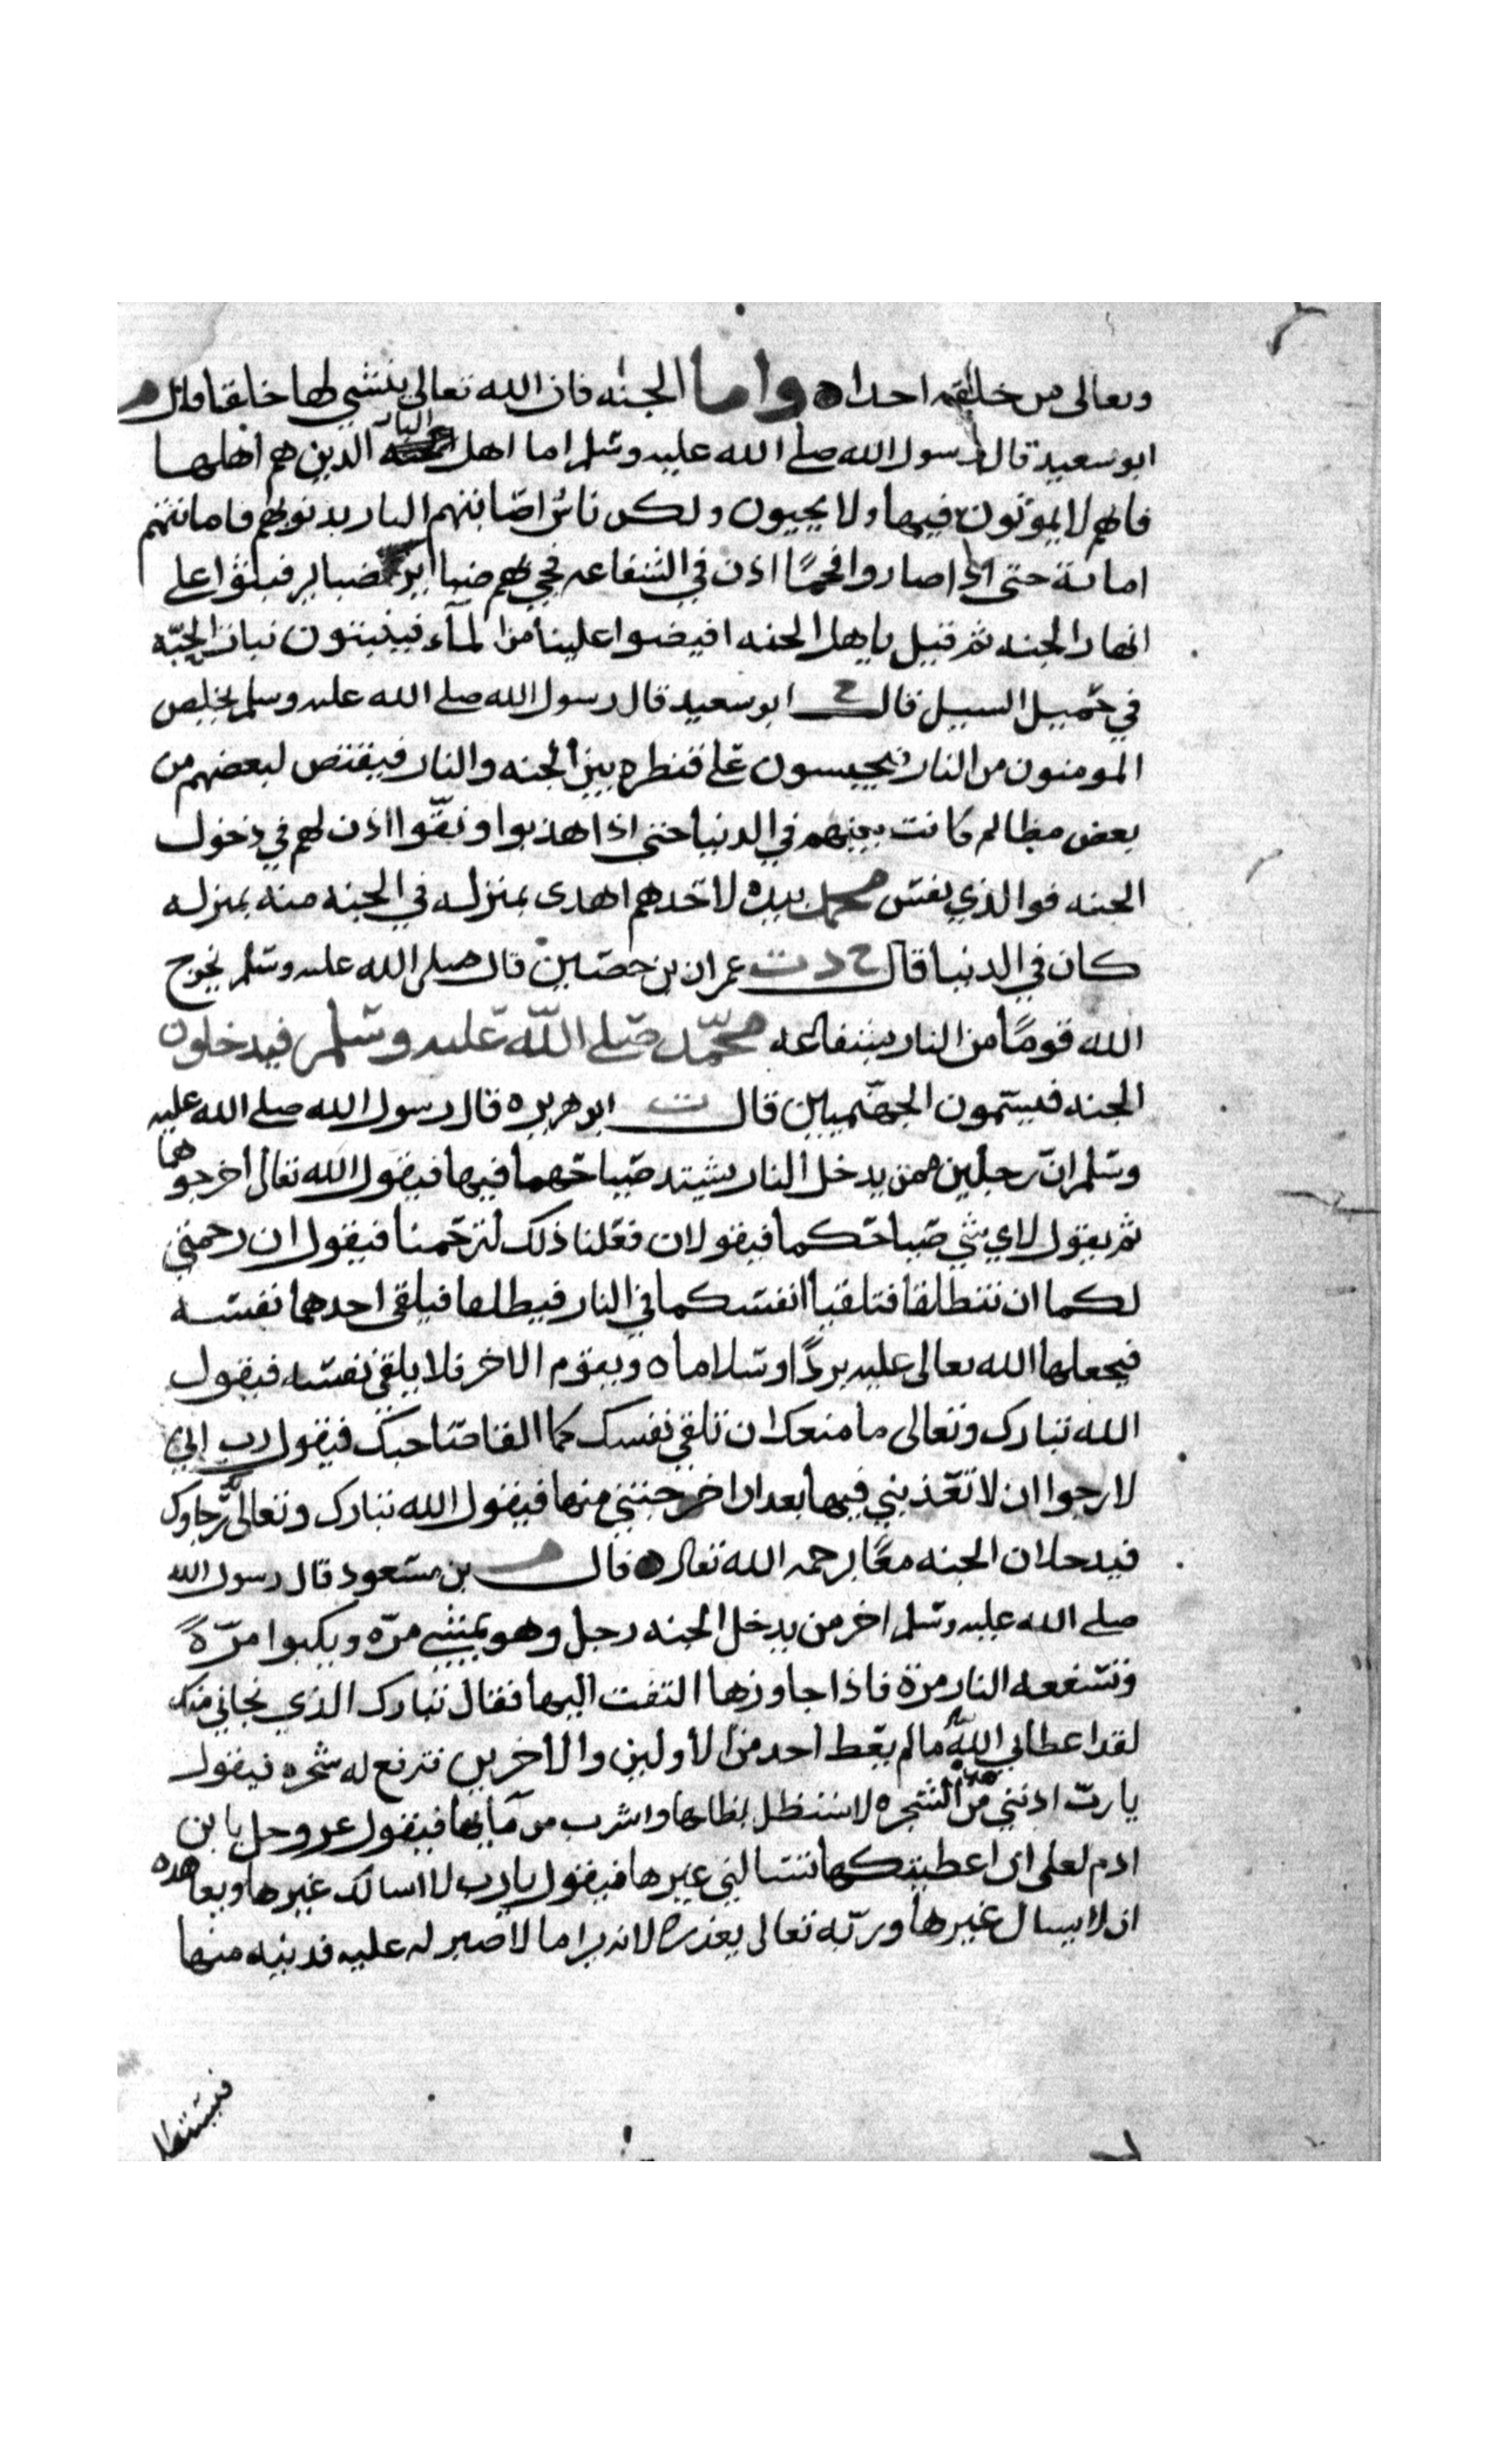 وتعالى من خلقه احدا ٥ واما الجنه فان الله تعالى ينشي لها خلقا قال م
ابو سعيد قال رسول الله صلى الله عليه وسلم اما اهل النار الذين هم اهلها
فانهم لا يموتون فيها ولا يحيون ولكن ناسٌ اصابتهم النار بذنوبهم فاماتتهم
اماتة حتى اذا صاروا فحمًا اذن في الشفاعه فجي بهم ضباير ضباير فبثوا على
انهار الجنه ثم قيل ياهل الجنه افيضوا علينا من المآء فينبتون نبات الحبّه
في حميل السيل قال خ ابو سعيد قال رسول الله صلى الله عليه وسلم يخلص
المومنون من النار فيحبسون على قنطره بين الجنه والنار فيقتص لبعضهم من
بعض مظالم كانت بينهم في الدنيا حتى اذا هذبوا ونقّوا اذن لهم في دخول
الجنه فوالذي نفس محمد بيده لاحدهم اهدى بمنزله في الجنه منه بمنزله
كان في الدنيا قال خ د ت عمران بن حصين قال صلى الله عليه وسلم يخرج
الله قومًا من النار بشفاعه محمّد صلى الله عليه وسلم فيدخلون
الجنه فيسمون الجهنّميين قال ت ابو هريره قال رسول الله صلى الله عليه
وسلم ان رجلين ممن يدخل النار يشتد صياحهما فيها فيقول الله تعالى اخرجوهما
ثم يقول لاي شي صياحكما فيقولان فعلنا ذلك لترحمنا فيقول ان رحمتي
لكما ان تنطلقا فتلقيا انفسكما في النار فيطلقا فيلقى احدهما نفسه
فيجعلها الله تعالى عليه بردًا وسلاما ٥ ويقوم الاخر فلا يلقي نفسه فيقول
الله تبارك وتعالى ما منعك ان تلقي نفسك كما القا صاحبك فيقول رب اني
لارجوا ان لا تعذبني فيها بعد ان اخرجتني منها فيقول الله تبارك وتعالى لك رجاوك
فيدخلان الجنه معًا برحمه الله تعالى ٥ قال م بن مسعود قال رسول الله
صلى الله عليه وسلم اخر من يدخل الجنه رجل وهو يمشي مرّه ويكبوا مرّةً
وتسفعه النار مرة فاذا جاوزها التفت اليها فقال تبارك الذي نجاني منك
لقد اعطاني اللهُ ما لم يعط احد من الأولين والأخرين فترفع له شجره فيقول
يا ربّ ادنني من هذه الشجره لاستظل بظلها واشرب من مآيها فيقول عز وجل يا بن
ادم لعلى ان اعطيتكها تسالني غيرها فيقول يا رب لا اسالك غيرها ويعاهده
ان لا يسال غيرها وربّه تعالى يعذره لانه يرا ما لا صبر له عليه فدنيه منها
فيستظل